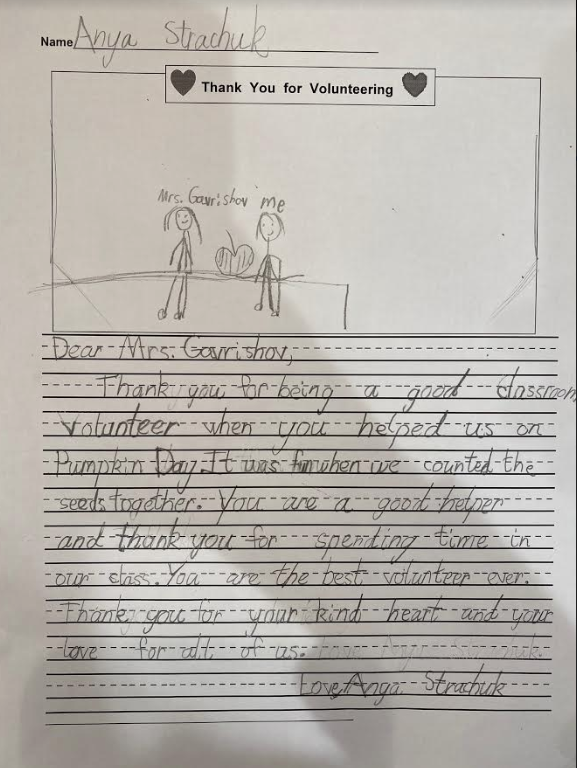 Name Anya Strachuk
Thank You for Volunteering
Mrs. Gavrishov me
Dear Mrs. Gavrishov,
Thank you for being a good classroom
volunteer when you helped us on
Pumpkin Day. It was fun when we counted the
seeds together. You are a good helper
and thank you for spending time in
our class. You are the best volunteer ever.
Thank you for your kind heart and your
love for all of us.
Love, Anya Strachuk